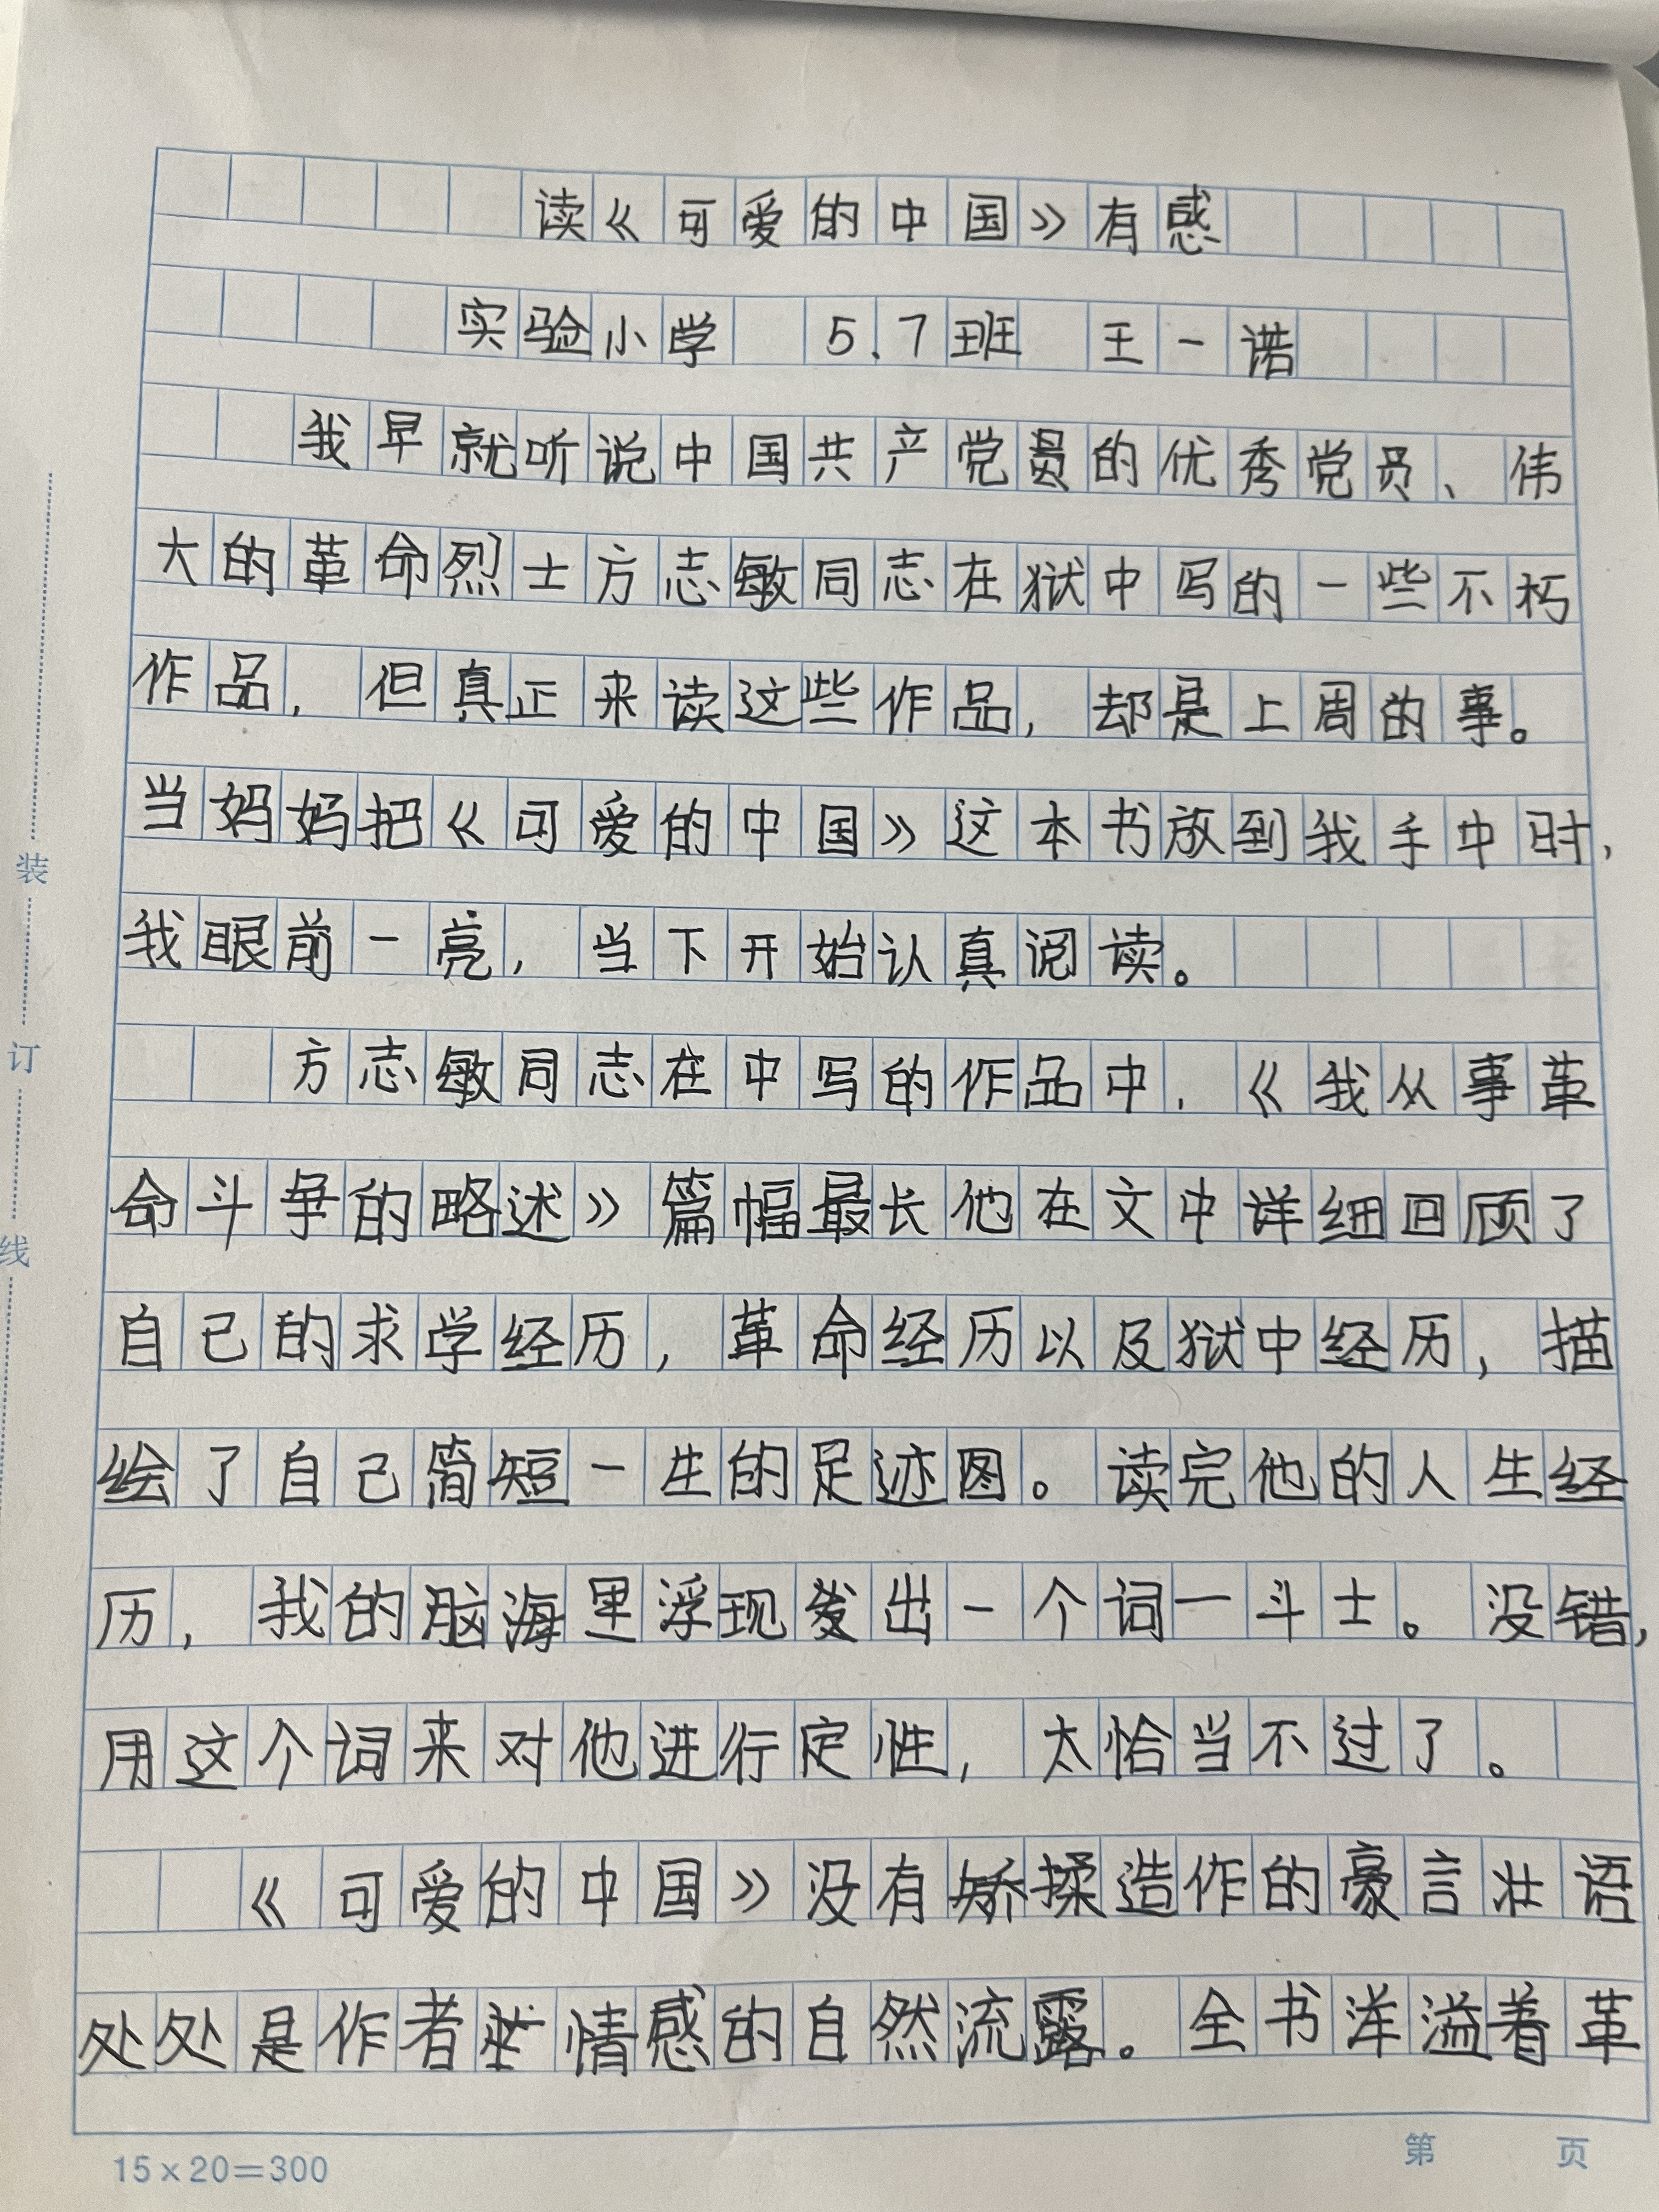 读《可爱的中国》有感
实验小学 5.7班 王一诺
我早就听说中国共产党员的优秀党员、伟
大的革命烈士方志敏同志在狱中写的一些不朽
作品，但真正来读这些作品，却是上周的事。
当妈妈把《可爱的中国》这本书放到我手中时，
我眼前一亮，当下开始认真阅读。
方志敏同志在中写的作品中，《我从事革
命斗争的略述》篇幅最长他在文中详细回顾了
自己的求学经历，革命经历以及狱中经历，描
绘了自己简短一生的足迹图。读完他的人生经
历，我的脑海里浮现出一个词一斗士。没错，
用这个词来对他进行定性，太恰当不过了。
《可爱的中国》没有矫揉造作的豪言壮语
处处是作者情感的自然流露。全书洋溢着革
装
订
线
15×20=300
第 页